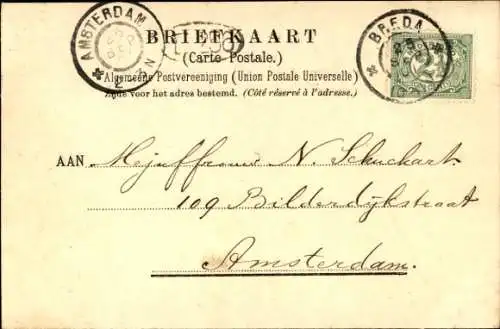 AMSTERDAM
BRIEFKAART
BREDA
(Carte Postale.)
Algemeene Postvereeniging (Union Postale Universelle)
Zijde voor het adres bestemd. (Côté réservé à l'adresse.)
AAN Mejuffrouw N. Schuckart.
109 Bilderdijkstraat
Amsterdam.